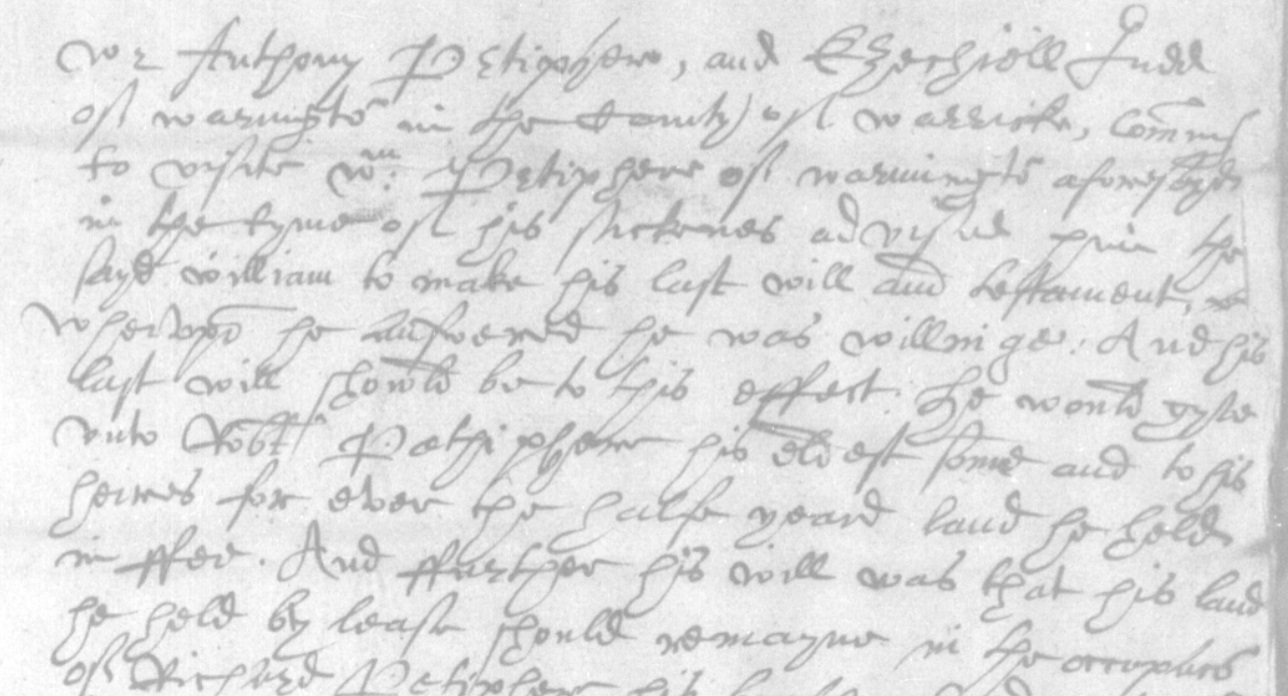 wee Anthony Petiphere, and Ezechiell Judd
of warmingtō in the County of warricke, Comīng
to visite Wm: Petiphere of warmingtō aforesayd
in the tyme of his sickenes advised him the
sayd william to make his last will and testament,
Wherupō he answered he was willinge. And his
last will should be to this effect. he would gyve
vnto Robt Pethiphere his eldest sonne and to his
heires for ever the halfe yeard land he held
in ffee. And ffurther his will was that his land
he held by lease should remayne in the
of Richard Petipher his